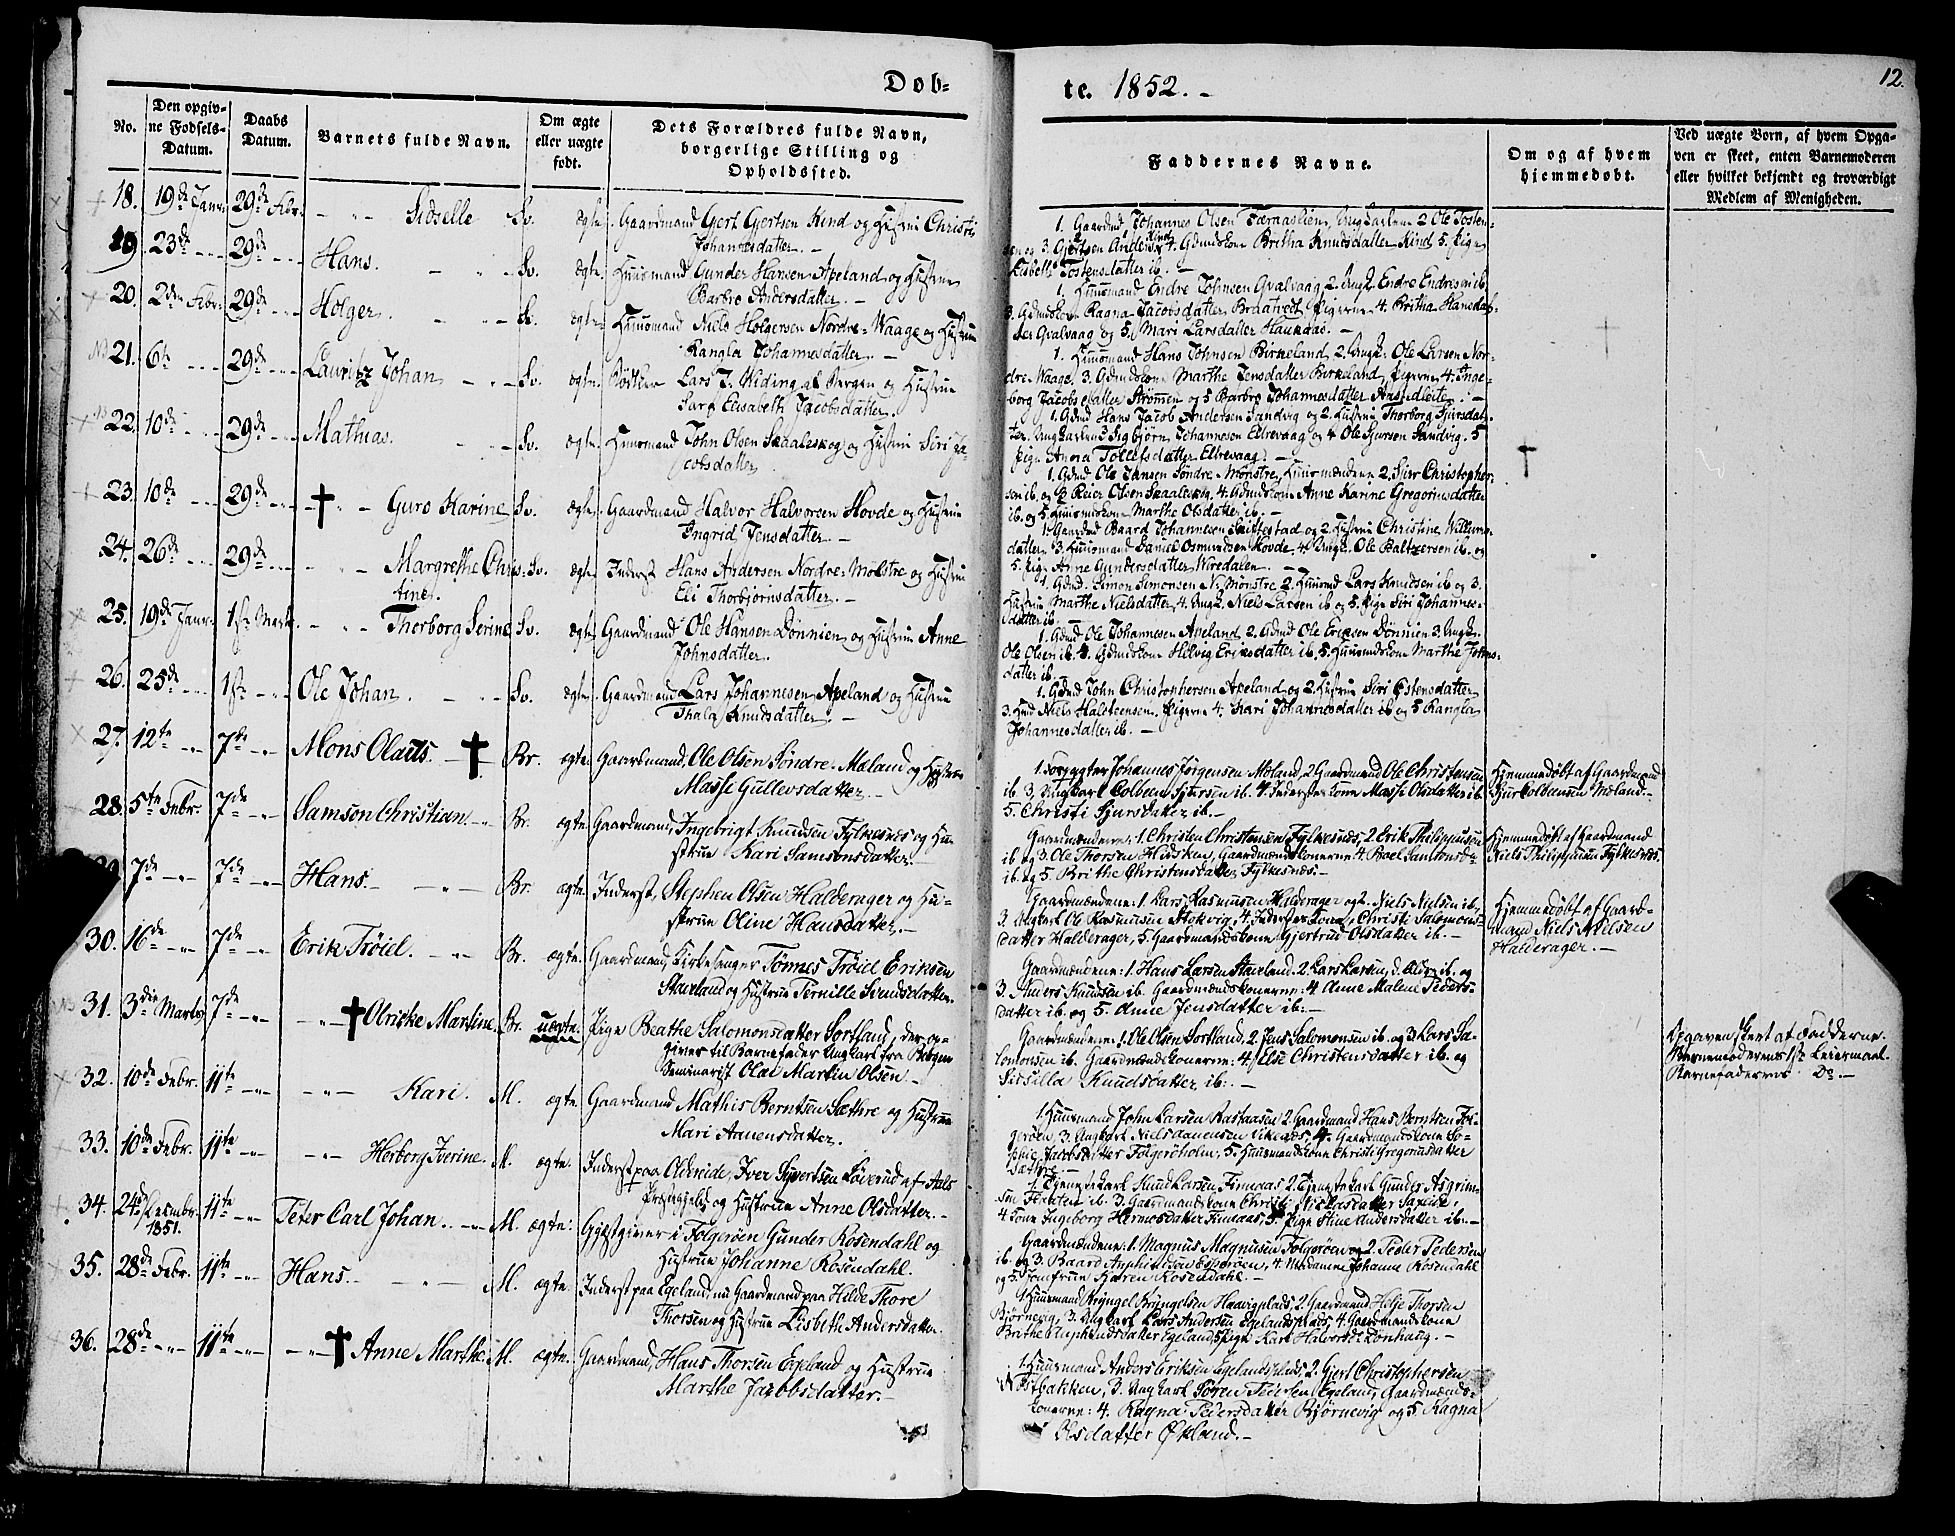 Dob=
te. 1852. -
12.
No.
Den opgiv-
ne Fodsels-
Datum.
Daabs
Datum.
Barnets fulde Navn.
Om ægte
eller uægte
født.
Dets Forældres fulde Navn,
borgerlige Stilling og
Opholdssted.
Faddernes Navne.
Om og af hvem
hjemmedøbt.
Ved uægte Born, af hvem Opga-
ven er skeet, enten Barnemoderen
eller hvilket bekjendt og troværdigt
Medlem af Menigheden.
18. 19de Janr. 29de Febr. Sidselle Sv. ægte. Gaardmand Gjert Gjertsen Kind og Hustru Christi
Johannesdatter. -
1. Gaardmd Johannes Olsen 2 Ole Tosten-
sen og 3. Gjertsen Anders Kind 4. Gdmdskone Britha Knudsdatter Kind 5. Pige
Lisbeth Tostensdatter ib. -
19 23de 29de Hans. Sv. ægte. Huusmand Gunder Hansen Apeland og Hustrue
Barbro Andersdatter. -
1. Huusmand Endre Johnsen Qvalvaag 2. Ungk. Endre Endresen ib.
3. Gdmdskone Ragna Jacobsdatter Braatvedt, Pigerne 4. Britha Hansdat-
ter Qvalvaag og 5. Mari Larsdatter Haukaas. -
20. 2den Febr. 29de Holger. Sv. ægte. Huusmand Niels Holgersen Nordre-Waage og Hustrue
Rangla Johannesdatter. -
1. Huusmand Hans Johnsen Birkeland, 2. Ungk. Ole Larsen Nor-
dre-Waage. 3. Gdmdskone Marthe Jensdatter Birkeland, Pigerne 4. Inge-
borg Jacobsdatter Strømen og 5 Barbro Johannesdatter
21. 6te 29de Lauritz Johan Sv. ægte. Bødker Lars J. Hiding af Bergen og Hustrue
Sara Elisabeth Jacobsdatter.
1. Gdmd Hans Jacob Andersen Sandvig og 2. Hustrue Thorborg Sjursdat-
ter. Ungkarlene 3 Sigbjørn Johannesen Eltrevaag og 4 Ole Sjursen Sandvig. 5
Pige Anna Tollefsdatter Eltrevaag. -
22. 10de 29de Mathias. Sv. ægte. Huusmand John Olsen Skaaleskog og Hustrue Siri Ja-
cobsdatter
1. Gdmd Ole Jensen Søndre-Mønstre, Huusmændene 2. Siur Christopher-
sen ib. og 3 Reier Olsen Skaaleskog. 4. Gdmdskone Anne Karine Gregoriusdatter
ib. og 5. Huusmdskone Marthe Olsdatter ib. -
23. 10de 29de Guro Karine Sv. ægte. Gaardmand Halvor Halvorsen Hovde og Hustrue
Ingrid Jensdatter. -
1. Gaardmd Baard Johannesen Skittestad og 2. Hustrue Christine Willums-
datter. 3. Huusmand Daniel Osmundsen Hovde. 4. Ungk. Ole Baltzersen ib. og
5. Pige Anne Gundersdatter Wiredalen. -
24. 26de 29de Margrethe Chris- Sv. ægte. Inderst Hans Andersen Nordre-Molstre og Hustrue
tine. Eli Thorbjørnsdatter. -
1. Gdmd. Simon Simonsen N. Mønstre 2. Huusmd Lars Knudsen ib og 3.
Hustrue Marthe Nielsdatter, 4. Ungk. Niels Larsen ib og 5. Pige Siri Johannes-
datter ib.
25. 19de Janr. 1ste Marts. Thorborg Serine Sv. ægte. Gaardmand Ole Hansen Dønnien og Hustrue Anne
Johnsdatter.
1. Gdmd Ole Johannesen Apeland 2. Gdmd Ole Eriksen Dønnien 3. Ungk.
Ole Olsen ib. 4. Gdmdskone Helvig Eriksdatter ib. 5. Huusmdskone Marthe Johns-
datter ib.
26. 25de 1ste Ole Johan. Sv. ægte. Gaardmand Lars Johannesen Apeland og Hustrue
Thala Knudsdatter. -
1. Gdmd John Christophersen Apeland og 2. Hustrue Siri Østensdatter
3. Niels Halsteensen. Pigerne 4. Kari Johannesdatter ib og 5 Rangla
Johannesdatter ib. -
27. 12te 7de Mons Olaus. Br. ægte. Gaardmand, Ole Olsen Søndre-Mæland og Hustrue
Masse Gullevsdatter. -
1. Forpagter Johannes Jørgensen Mæland, 2 Gaardmand Ole Christensen
ib 3. Ungkarl Colben Sjursen ib. 4. Inderstkone Masse Olsdatter ib
5. Christi Sjursdatter ib. -
Hjemmedøbt af Gaardmand
Sjur Colbensen Mæland. -
28. 5te Febr. 7de Samson Christian Br. ægte. Gaardmand, Ingebrigt Knudsen Fylkesnes og Hu-
strue Kari Samsonsdatter.
Gaardmændene: 1. Christen Christensen Fylkesnæs, 2 Erik Philippusen
ib og 3. Ole Thorsen Hidsken, Gaardmændskonerne 4. Boel Samsonsd.
ib. og 5. Brithe Christensdatter Fylkesnæs. -
Hjemmedøbt af Gaardmand
Niels Philippusen Fylkesnæs.
7de 7de Hans. Br. ægte. Inderst, Stephen Olsen Halderager og Hu-
strue Oline Hansdatter. -
Gaardmændene: 1 Lars Rasmusen Halderager og 2. Niels Nielsen ib,
3. Ungkarl Ole Rasmusen Stokvig, 4. Inderstkone, Christi Salomons-
datter Halderager, 5. Gaardmandskone Gjertrud Olsdatter ib. -
Hjemmedøbt af Gaard-
mand Niels Nielsen
Halderager. -
30. 16de 7de Erik Trøiel. Br. ægte. Gaardmand, Kirkesanger Tønnes Trøiel Eriksen
Staveland og Hustrue Pernille Svendsdatter.
Gaardmændene: 1. Hans Larsen Staveland. 2. Lars Larsen, d. Ældre ib. og
3. Anders Knudsen ib. Gaardmændskonerne: 4 Anne Malene Peders-
datter ib. og 5. Anne Jensdatter ib. -
31. 3die Marts 7de Olriske Martine. Br. uægte. Pige Beathe Salomonsdatter Sortland, der op-
giver til Barnefader Ungkarl fra Bergen
Seminarist Olai Martin Olsen. -
Gaardmændene: 1. Ole Olsen Sortland, 2. Jens Salomonsen ib. og 3. Lars Sa-
lomonsen ib. Gaardmændskonerne: 4. Else Christensdatter ib. og
Sirsilla Knudsdatter ib: -
Opgaven skeet af Fadderne.
Barnemoderens 1ste Leiermaal.
Barnefaderens Do. -
32. 10de Febr. 11te Kari. M. ægte. Gaardmand Mathis Berntsen Sæthre og Hustrue
Mari Aanensdatter.
1. Huusmand John Larsen Rastaasen 2. Gaardmand Hans Berntsen Fol-
gerøen, 3. Ungkarl Niels Aanensen 4. Gaardmandskone So-
phie Jacobsdatter Folgerøholm, 5. Huusmandskone Christi Gregoriusdatter
Sæthre. -
33. 10de Febr. 11te Herborg Iverine. M. ægte. Inderst paa Oldereide, Iver Syvertsen Løverud af Aals
Præstegjeld og Hustrue Anne Olsdatter. -
1. Tjenestekarl Knud Larsen Finnaas 2. Tjenestekarl Gunder Asgrim-
sen ib. 3. Gaardmandskone Christi
4. Kone Ingeborg Hermosdatter Finnaas, 5. Pige Stine Andersdatter ib: -
34. 24de Decembr. 1851. 11te Peter Carl Johan. M. ægte. Gjæstgiver i Folgerøen Gunder Rosendahl og
Hustrue Johanne Rosendahl.
Gaardmændene: 1. Magnus Magnusen Folgerøen og 2. Peder Pedersen
ib. og 3. Baard Amphindsen Espevøen, 4. Madame Johanne Rosendahl
og 5. Jomfrue Karen Rosendahl. -
35. 28de Febr. 11te Hans. M. ægte. Inderst paa Egeland, nu Gaardmand paa Hilde Thore
Thorsen og Hustrue Lisbeth Andersdatter.
1. Huusmand Bryngel Bryngelsen Haavigplads, 2. Gaardmand Helje Thorsen
Bjørnevig, 3. Ungkarl Lars Andersen Egelandsplads, 4. Gaardmandskone
Brithe Egeland 5 Pige Kari
36. 28de 11te Anne Marthe. M. ægte. Gaardmand, Hans Thorsen Egeland og Hustrue
Marthe Jacobsdatter. -
1. Huusmand Anders Eriksen Egelandsplads, 2. Gjert Christophersen
Nøstbakken, 3. Ungkarl Søren Pedersen Egeland, Gaardmænds-
konerne: 4. Ragna Pedersdatter Bjørnevig og 5. Ragna
Olsdatter Økland. -